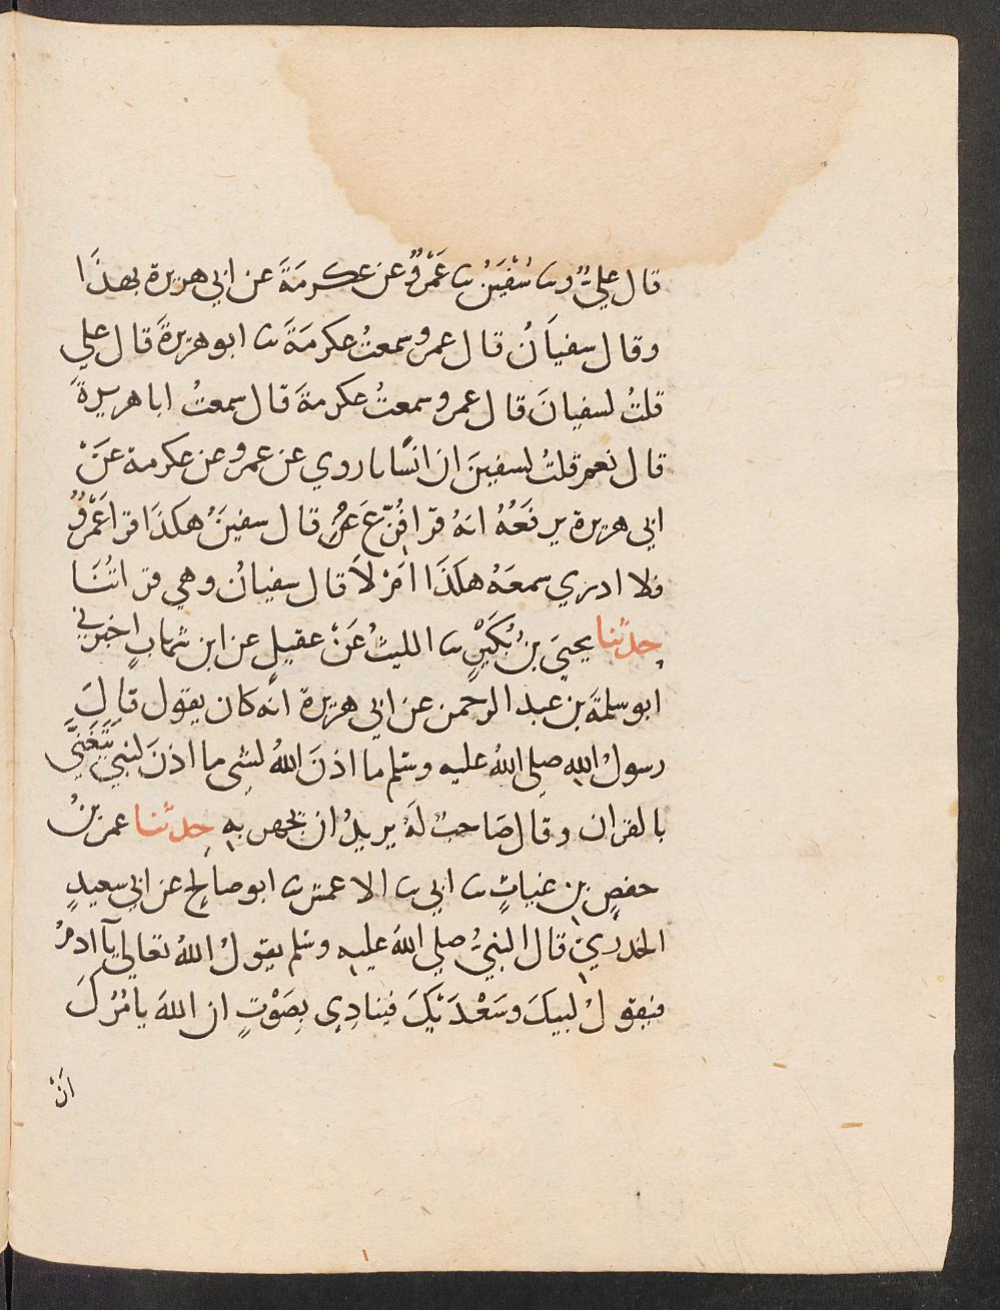 قال عليٌّ وثنا سُفْيَنُ ثنا عَمْرٌو عن عكرمَةَ عن ابي هريرة بهذَا
وقال سفيانُ قال عمرو سمعتُ عكرمَةَ ثنا ابو هريرةَ قال علي
قلتُ لسفيانَ قال عمرو سمعتُ عكرمةَ قال سمعتُ ابا هريرةَ
قال نعم قلتُ لسفينَ ان انسًانا روي عن عمرو عن عكرمة عَنْ
ابي هريرة يرفَعُهُ انهُ قرا فُرِّغَ قال سفينُ هكذَا قرا عَمْرٌو
فلا ادري سمعَهُ هكذَا امْ لَا قال سفيانُ وهي قراتُنَا
حدثنا يحيَى بنُ بُكَيْرٍ ثنا الليثُ عَنْ عقيلٍ عن ابن شهابٍ اخبرني
ابو سلمَةَ بن عبد الرحمن عن ابي هريرة انه كان يقول قالَ
رسولُ اللهِ صلى اللهُ عليه وسلم ما اذنَ اللهُ لشى ما اذنَ لنبيٍّ يَتَغَنَّي
بالقران وقال صَاحبٌ لَهُ يريدُ ان يجهر بِهِ حدثنا عمر بنُ
حفصٍ بن غياثٍ ثنا ابي ثنا الاعمش ثنا ابو صالحٍ عن ابي سعيدٍ
الخدريِّ قال النبيُّ صلي اللهُ عليهِ وسلم يقولُ اللهُ تعالي يآ ادمُ
فيقولُ لبيكَ وسَعْدَيْكَ فينادِي بِصَوْتٍ ان اللهَ يامُرُكَ
انْ